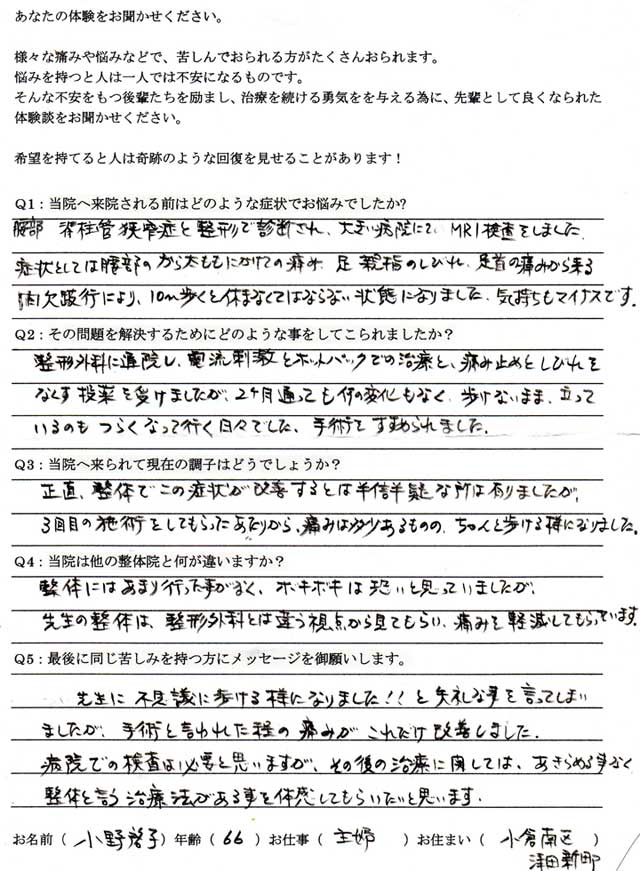 あなたの体験をお聞かせください。
様々な痛みや悩みなどで、苦しんでおられる方がたくさんおられます。
悩みを持つと人は一人では不安になるものです。
そんな不安をもつ後輩たちを励まし、治療を続ける勇気をを与える為に、先輩として良くなられた
体験談をお聞かせください。
希望を持てると人は奇跡のような回復を見せることがあります！
Q1：当院へ来院される前はどのような症状でお悩みでしたか?
腰部 脊柱管狭窄症と整形で診断され、大きい病院にて、MRI検査をしました。
症状としては腰部のから太ももにかけての痛み、足親指のしびれ、足首の痛みから来る
間欠跛行により、10m歩くと休まなくてはならない状態になりました。気持ちもマイナスです。
Q2：その問題を解決するためにどのような事をしてこられましたか？
整形外科に通院し、電流刺教とホットパックでの治療と、痛み止めとしびれを
なくす投薬を受けましたが、2ヶ月通っても何の変化もなく、歩けないまま、立って
いるのも つらくなって行く日々でした、手術を すすめられました。
Q3：当院へ来られて現在の調子はどうでしょうか？
正直、整体でこの症状が改善するとは半信半疑な所は有りましたが、
3回目の施術をしてもらったあたりから、痛みは多少あるものの、ちゃんと歩ける様になりました。
Q4：当院は他の整体院と何が違いますか？
整体にはあまり行った事がなく、ボキボキは恐いと思っていましたが、
先生の整体は、整形外科とは違う視点から見てもらい、痛みを軽減してもらっています。
Q5：最後に同じ苦しみを持つ方にメッセージを御願いします。
先生に 不思議に歩ける様になりました!! と失礼な事を言ってしまい
ましたが、手術と言われた程の 痛みが これだけ改善しました。
病院での検査は必要と思いますが、その後の治療に関しては、あきらめる事なく
整体と言う治療法がある事を体感してもらいたいと思います。
お名前（ 小野啓子）年齢（ 66 ）お仕事（ 主婦 ）お住まい（ 小倉南区 ）
津田新町